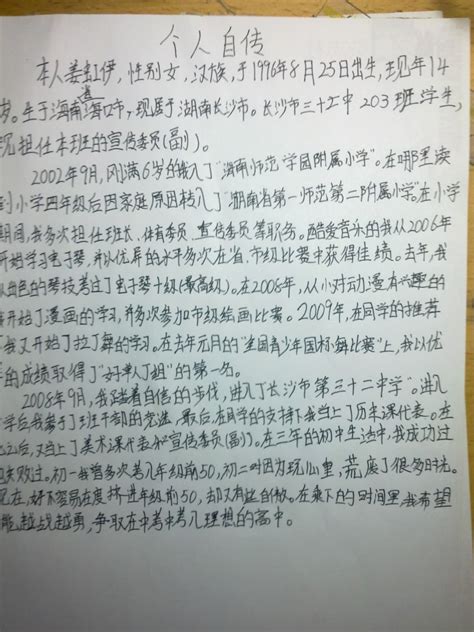 个人自传
本人姜虹伊，性别女，汉族，于1996年8月25日出生，现年14
岁。生于海南海口市，现居于湖南长沙市。长沙市三十二中203班学生，
现担任本班的宣传委员(副)。
2002年9月，刚满6岁的我入了"海南师范学园附属小学"。在哪里读
到小学四年级后因家庭原因转入"湖南省第一师范第二附属小学"。在小学
期间，我多次担任班长、体育委员、宣传委员等职务。酷爱音乐的我从2006年
开始学习电子琴，并以优异的水平多次在省、市级比赛中获得佳绩。去年，我
以出色的琴技考过了电子琴十级(最高级)。在2008年，从小对动漫有兴趣的
我开始了漫画的学习，并多次参加市级绘画比赛。2009年，在同学的推荐
下我又开始了拉丁舞的学习。在去年元月的"全国青少年国标舞比赛"上，我以优
的成绩取得了"好单人丁组"的第一名。
2008年9月，我踏着自信的步伐，进入了"长沙市第三十二中学"。进入
学后我参于了班干部的竞选，最后在同学的支持下我当上了历史课代表。在
之后，又当上了美术课代表和宣传委员(副)。在三年的初中生活中，我成功过
失败过。初一我曾多次考入年级前50，初二叫因为玩心重，荒废了很多时光。
现在，好不容易在度挤进年级前50，却又有些自傲。在剩下的时间里，我希望
能越战越勇，争取在中考中考入理想的高中。